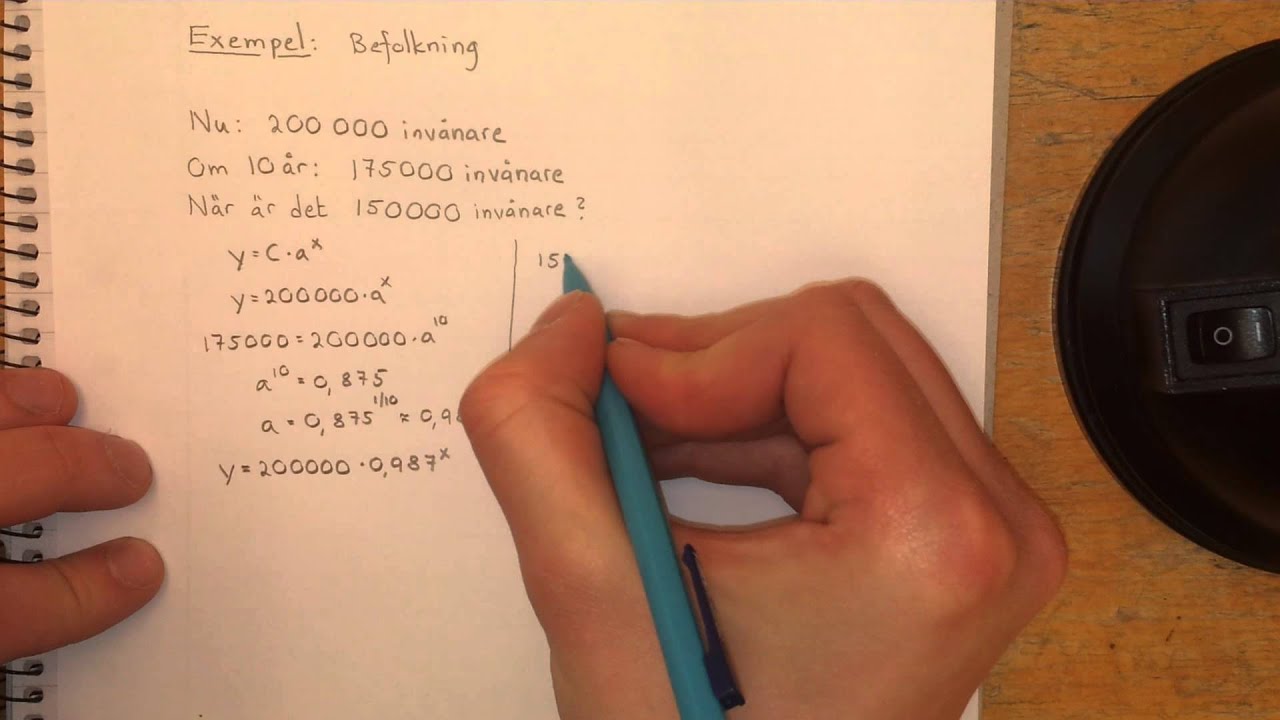 Exempel: Befolkning
Nu: 200 000 invånare
Om 10 år: 175000 invånare
När är det 150000 invånare?
y = C·a^x
y = 200000·a^x
175000 = 200000·a^10
a^10 = 0,875
a = 0,875^1/10 ≈ 0,9
y = 200000·0,987^x
15